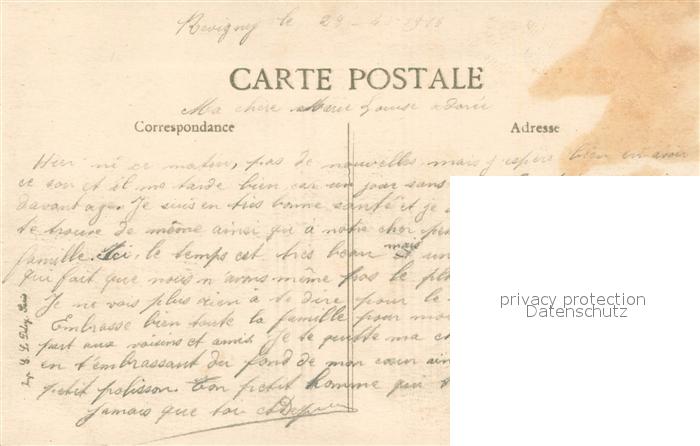 Revigny le 29 - 4 - 1916
CARTE POSTALE
Ma chère Marie Louise adorée
Correspondance
Adresse
Hier ni ce matin, pas de nouvelles mais j'espère bien en avoir
ce soir et il me tarde bien car un jour sans
davantage. Je suis en très bonne santé et je
te trouve de même ainsi qu'à notre cher
famille. Ici, le temps est très beau mais un
qui fait que nous n'avons même pas le
Je ne vois plus rien a te dire pour le
Embrasse bien toute la famille pour
part aux voisins et amis. Je te quitte ma
en t'embrassant du fond de mon cœur
petit polisson. Ton petit homme qui
jamais que toi
privacy protection
Datenschutz